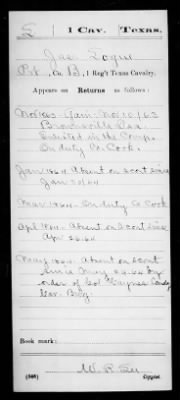 L 1 Cav. Texas.
Jas. Logue
Pvt., Co. B, 1 Reg't Texas Cavalry.
Appears on Returns as follows:
Nov 1863 Gain Nov 10/63
Brownsville Tex
Enlisted in the Comp.
On duty Co. Cook.
Jan 1864 Absent on Scout since
Jan 30/64
Mar 1864 On duty Co Cook
Apl 1864 Absent on Scout since
Apr 26.64
May 1864 Absent on Scout
since May 29.64 by
order of Col Haynes Comdg
Cav. Brig
Book mark:
(546) Copyist.